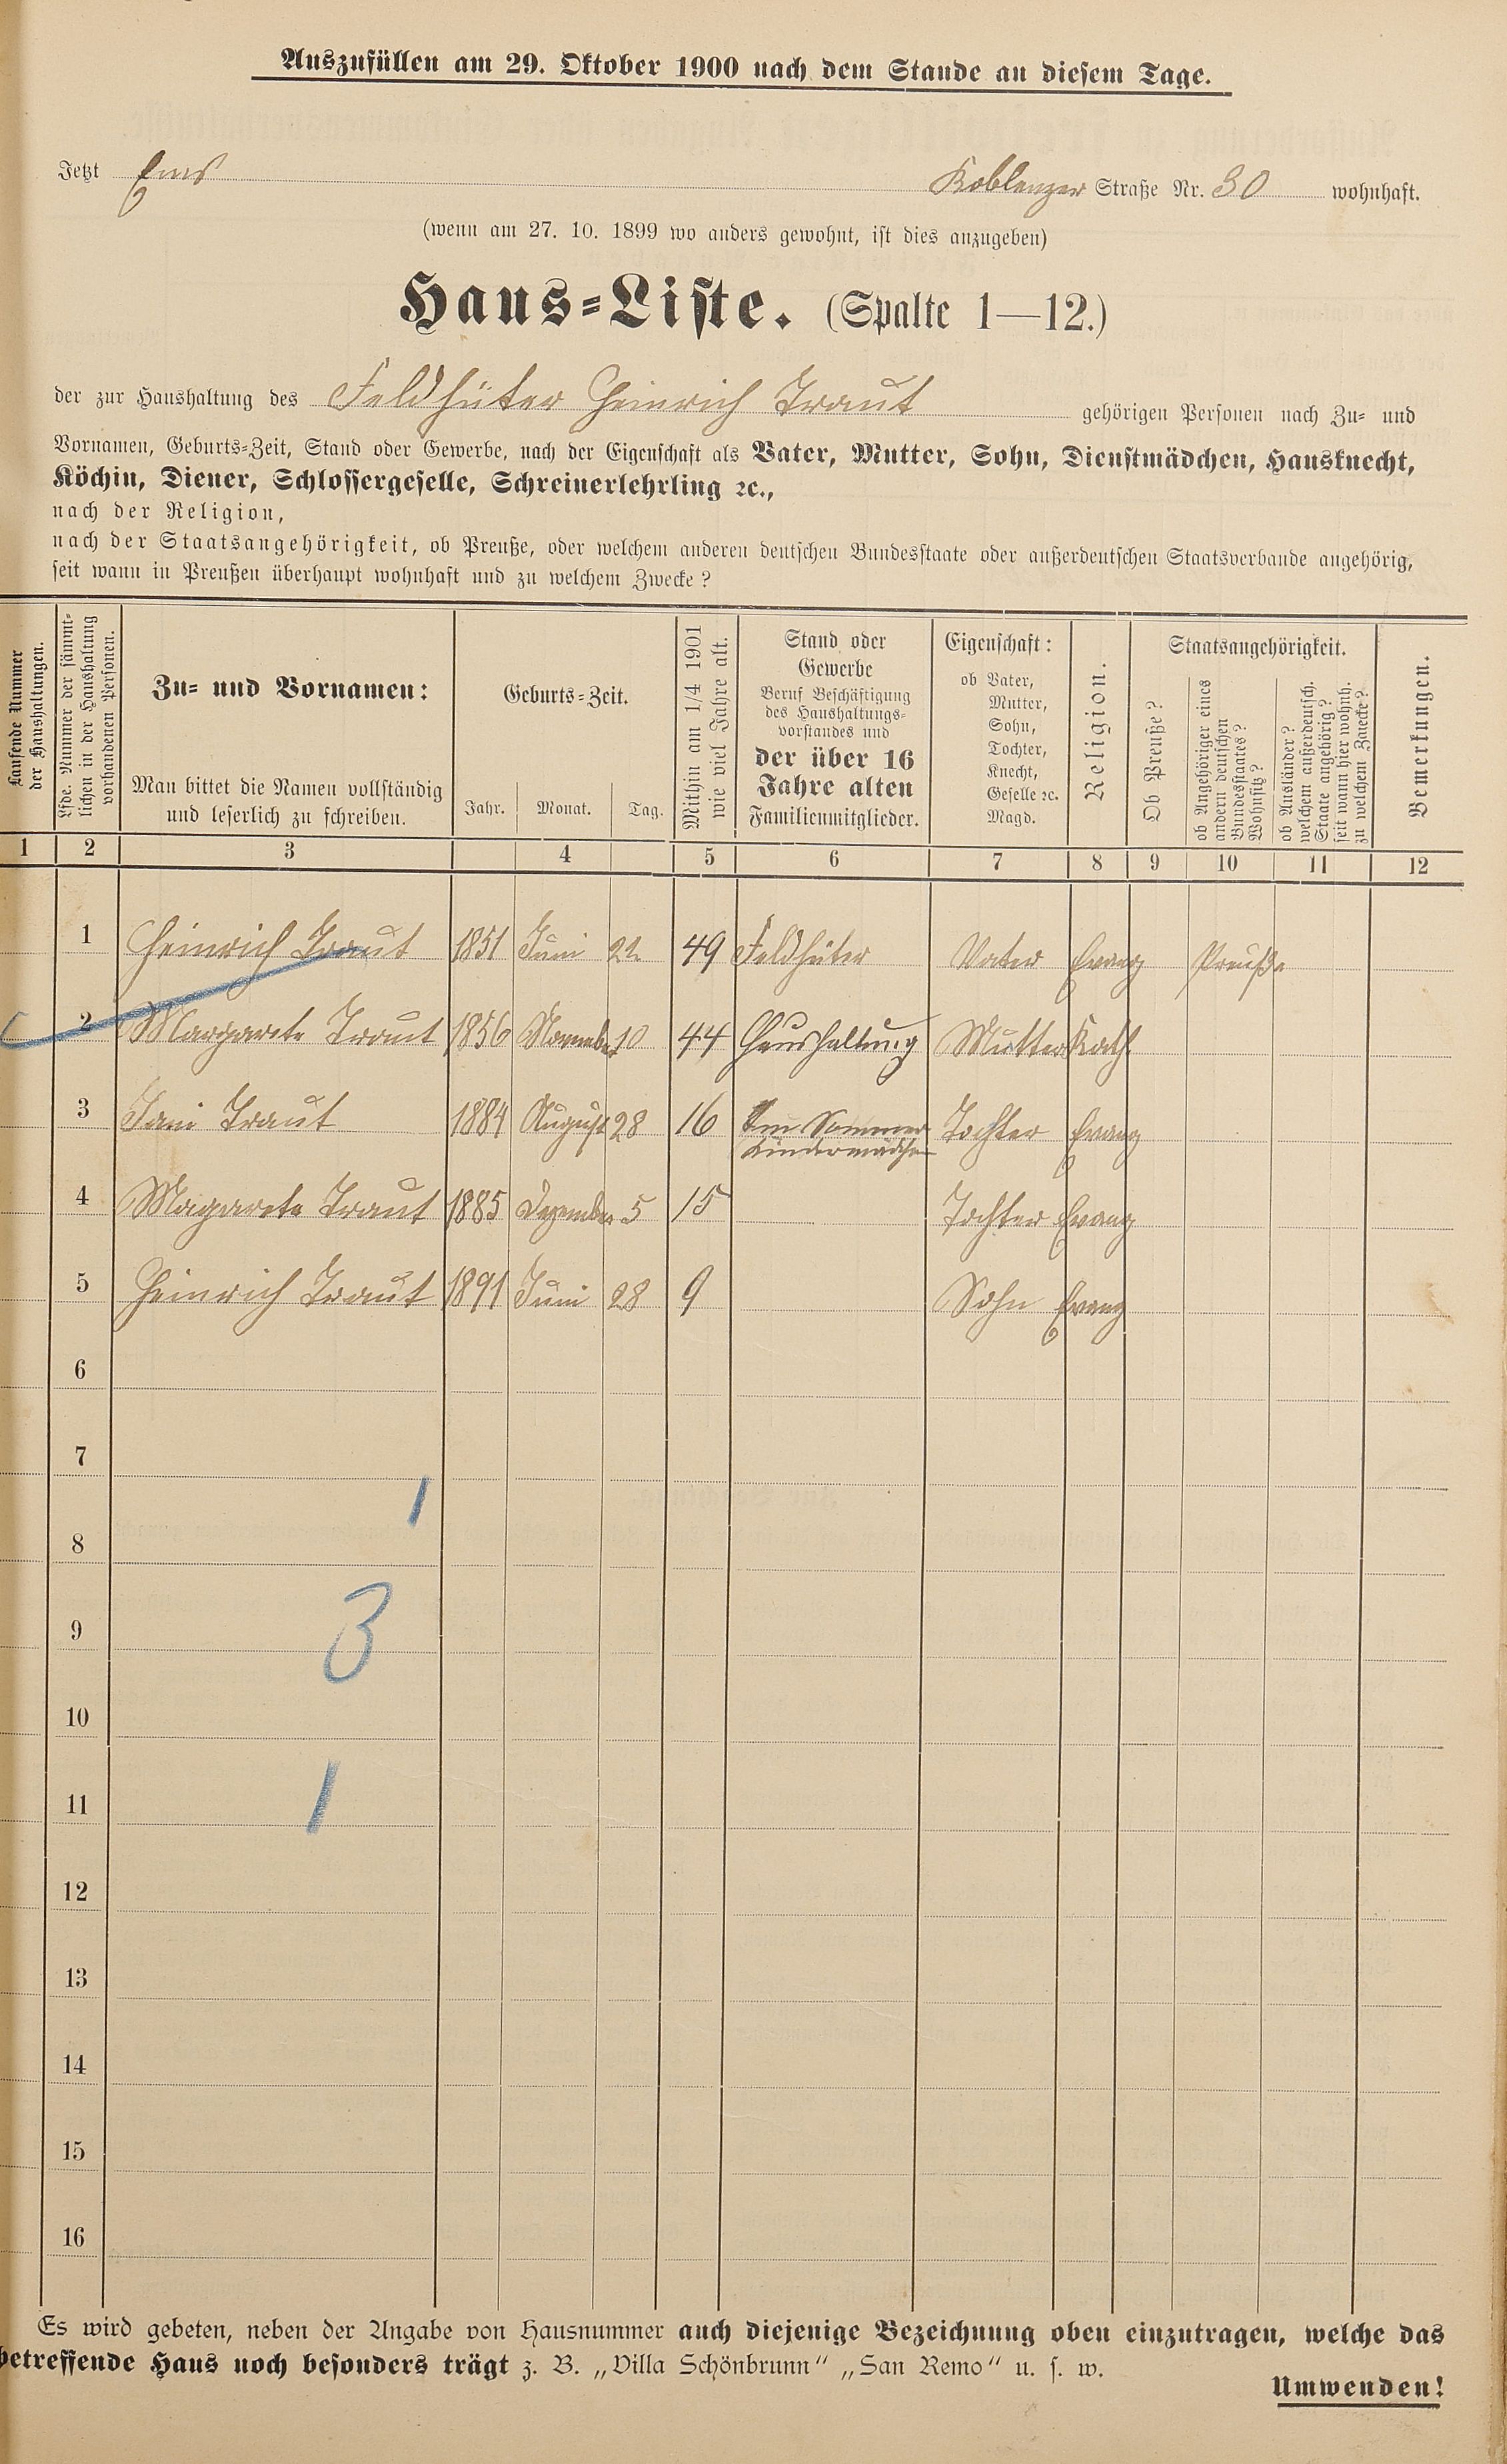 Auszufüllen am 29. Oktober 1900 nach dem Stande an diesem Tage.
Jetzt Ems Koblenzer Straße Nr. 30 wohnhaft.
(wenn am 27. 10. 1899 wo anders gewohnt, ist dies anzugeben)
Haus-Liste. (Spalte 1—12.)
der zur Haushaltung des Feldhüter Heinrich Traut gehörigen Personen nach Zu- und
Vornamen, Geburts-Zeit, Stand oder Gewerbe, nach der Eigenschaft als Vater, Mutter, Sohn, Dienstmädchen, Hausknecht,
Köchin, Diener, Schlossergeselle, Schreinerlehrling ꝛc.,
nach der Religion,
nach der Staatsangehörigkeit, ob Preuße, oder welchem anderen deutschen Bundesstaate oder außerdeutschen Staatsverbande angehörig,
seit wann in Preußen überhaupt wohnhaft und zu welchem Zwecke?
Laufende Nummer
der Haushaltungen.
Lfde. Nummer der sämmt-
lichen in der Haushaltung
vorhandenen Personen.
Zu- und Vornamen:
Man bittet die Namen vollständig
und leserlich zu schreiben.
Geburts-Zeit.
Jahr. Monat. Tag.
Mithin am 1/4 1901
wie viel Jahre alt.
Stand oder
Gewerbe
Beruf Beschäftigung
des Haushaltungs-
vorstandes und
der über 16
Jahre alten
Familienmitglieder.
Eigenschaft:
ob Vater,
Mutter,
Sohn,
Tochter,
Knecht,
Geselle ꝛc.
Magd.
Religion.
Staatsangehörigkeit.
Ob Preuße?
ob Angehöriger eines
andern deutschen
Bundesstaates?
Wohnsitz?
ob Ausländer?
welchem außerdeutsch.
Staate angehörig?
seit wann hier wohnh.
zu welchem Zwecke?
Bemerkungen.
1 2 3 4 5 6 7 8 9 10 11 12
1 Heinrich Traut 1851 Juni 22 49 Feldhüter Vater Evang Preuße
2 Margarete Traut 1856 November 10 44 Haushaltung Mutter Kath
3 Traut 1884 August 28 16 Im Sommer Kindermädchen Tochter Evang
4 Magarete Traut 1885 Dezember 5 15 Tochter Evang
5 Heinrich Traut 1891 Juni 28 9 Sohn Evang
6
7
1
8
3
9
10
1
11
12
13
14
15
16
Es wird gebeten, neben der Angabe von Hausnummer auch diejenige Bezeichnung oben einzutragen, welche das
betreffende Haus noch besonders trägt z. B. „Villa Schönbrunn“ „San Remo“ u. s. w.
Umwenden!